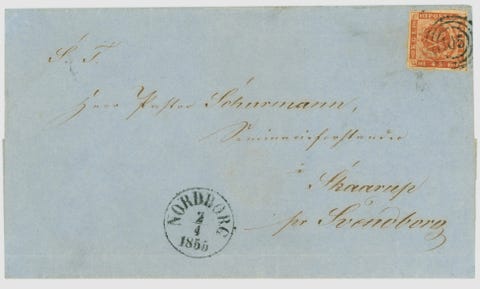 S. T.
Herr Pastor Schurmann,
Seminarieforstander
Skaarup
pr Svendborg
NORDBORG
2/4
1855